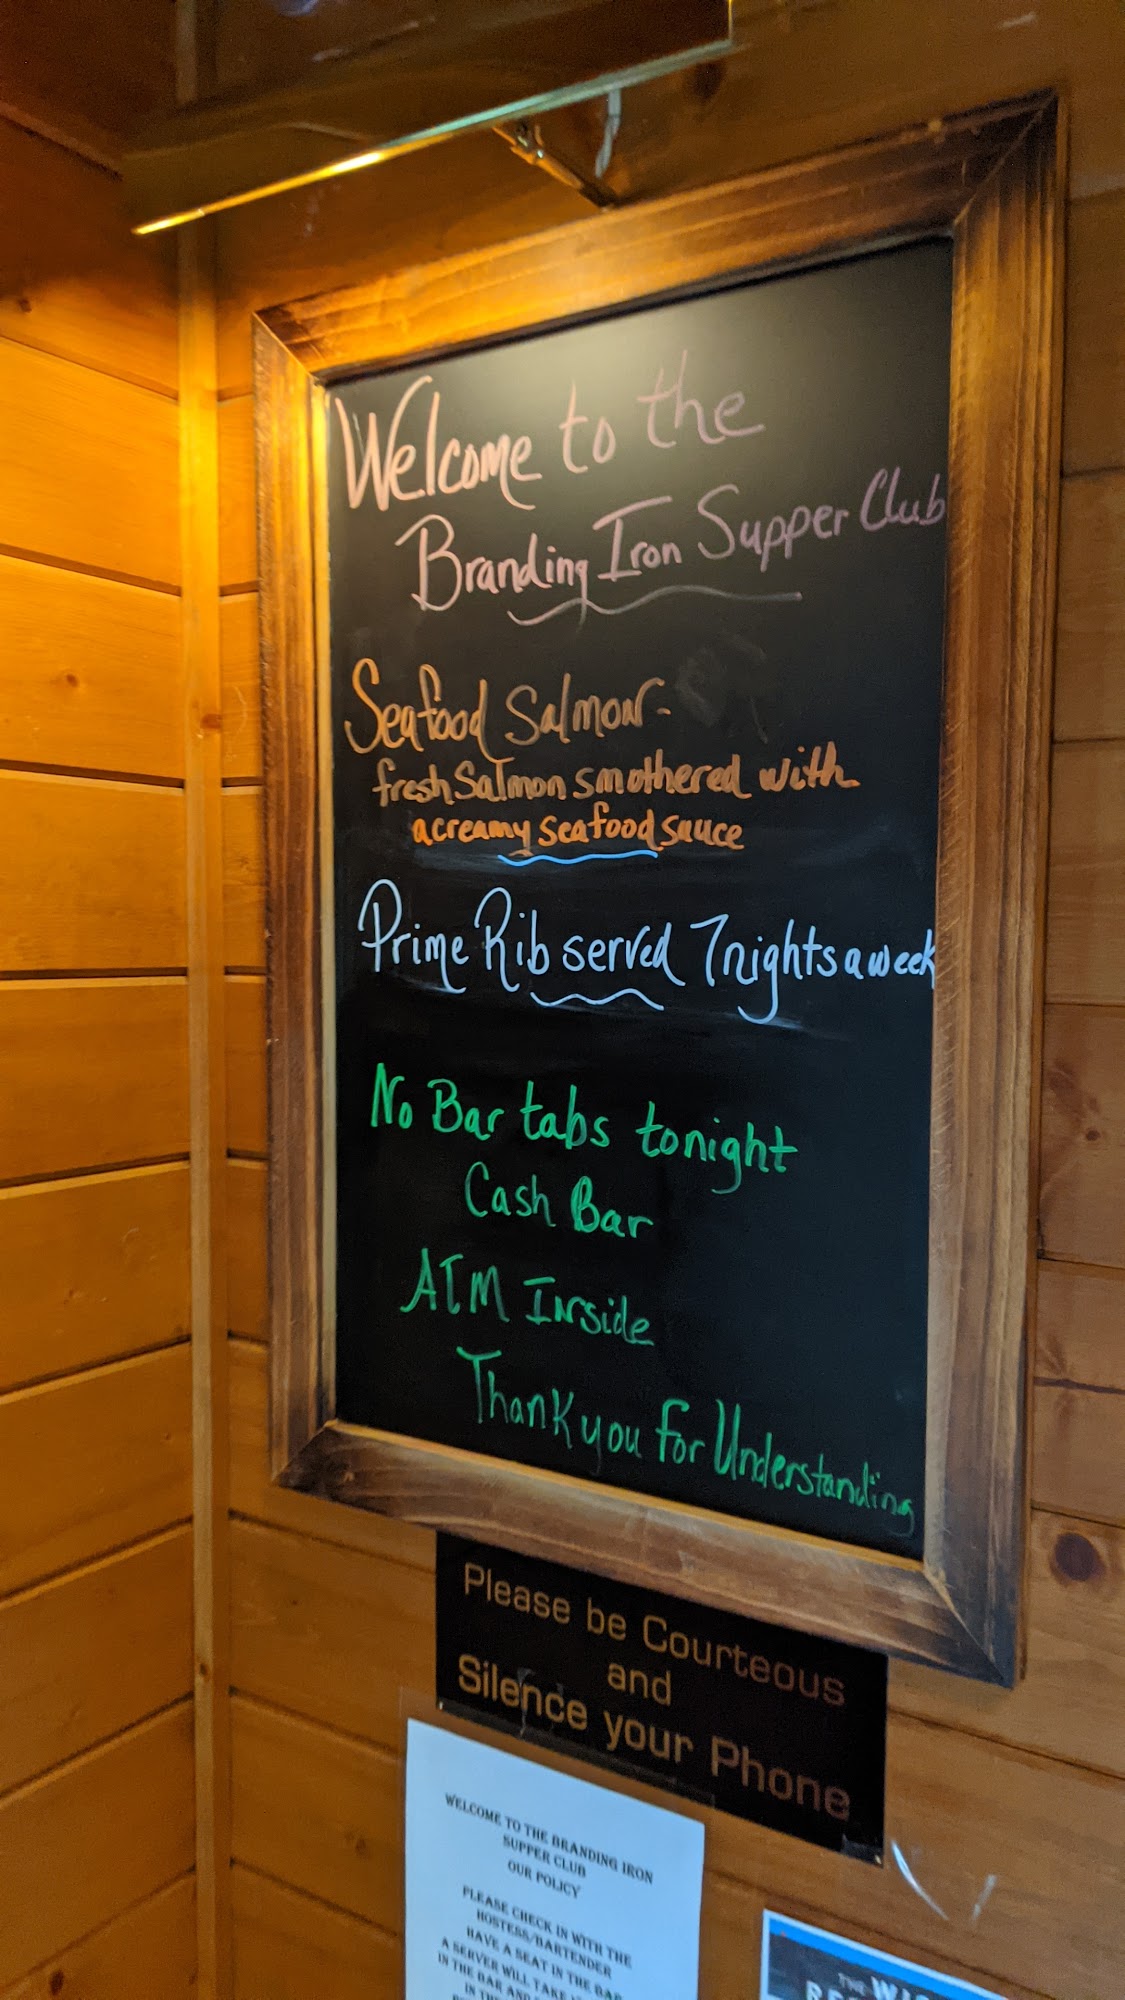 Welcome to the
Branding Iron Supper Club
Seafood Salmon-
fresh Salmon smothered with
a creamy seafood sauce
Prime Rib served 7 nights a week
No Bar tabs tonight
Cash Bar
ATM Inside
Thank you for Understanding
Please be Courteous
and
Silence your Phone
WELCOME TO THE BRANDING IRON
SUPPER CLUB
OUR POLICY
PLEASE CHECK IN WITH THE
HOSTESS/BARTENDER
HAVE A SEAT IN THE BAR
A SERVER WILL TAKE
IN THE BAR AND
IN THE
THE